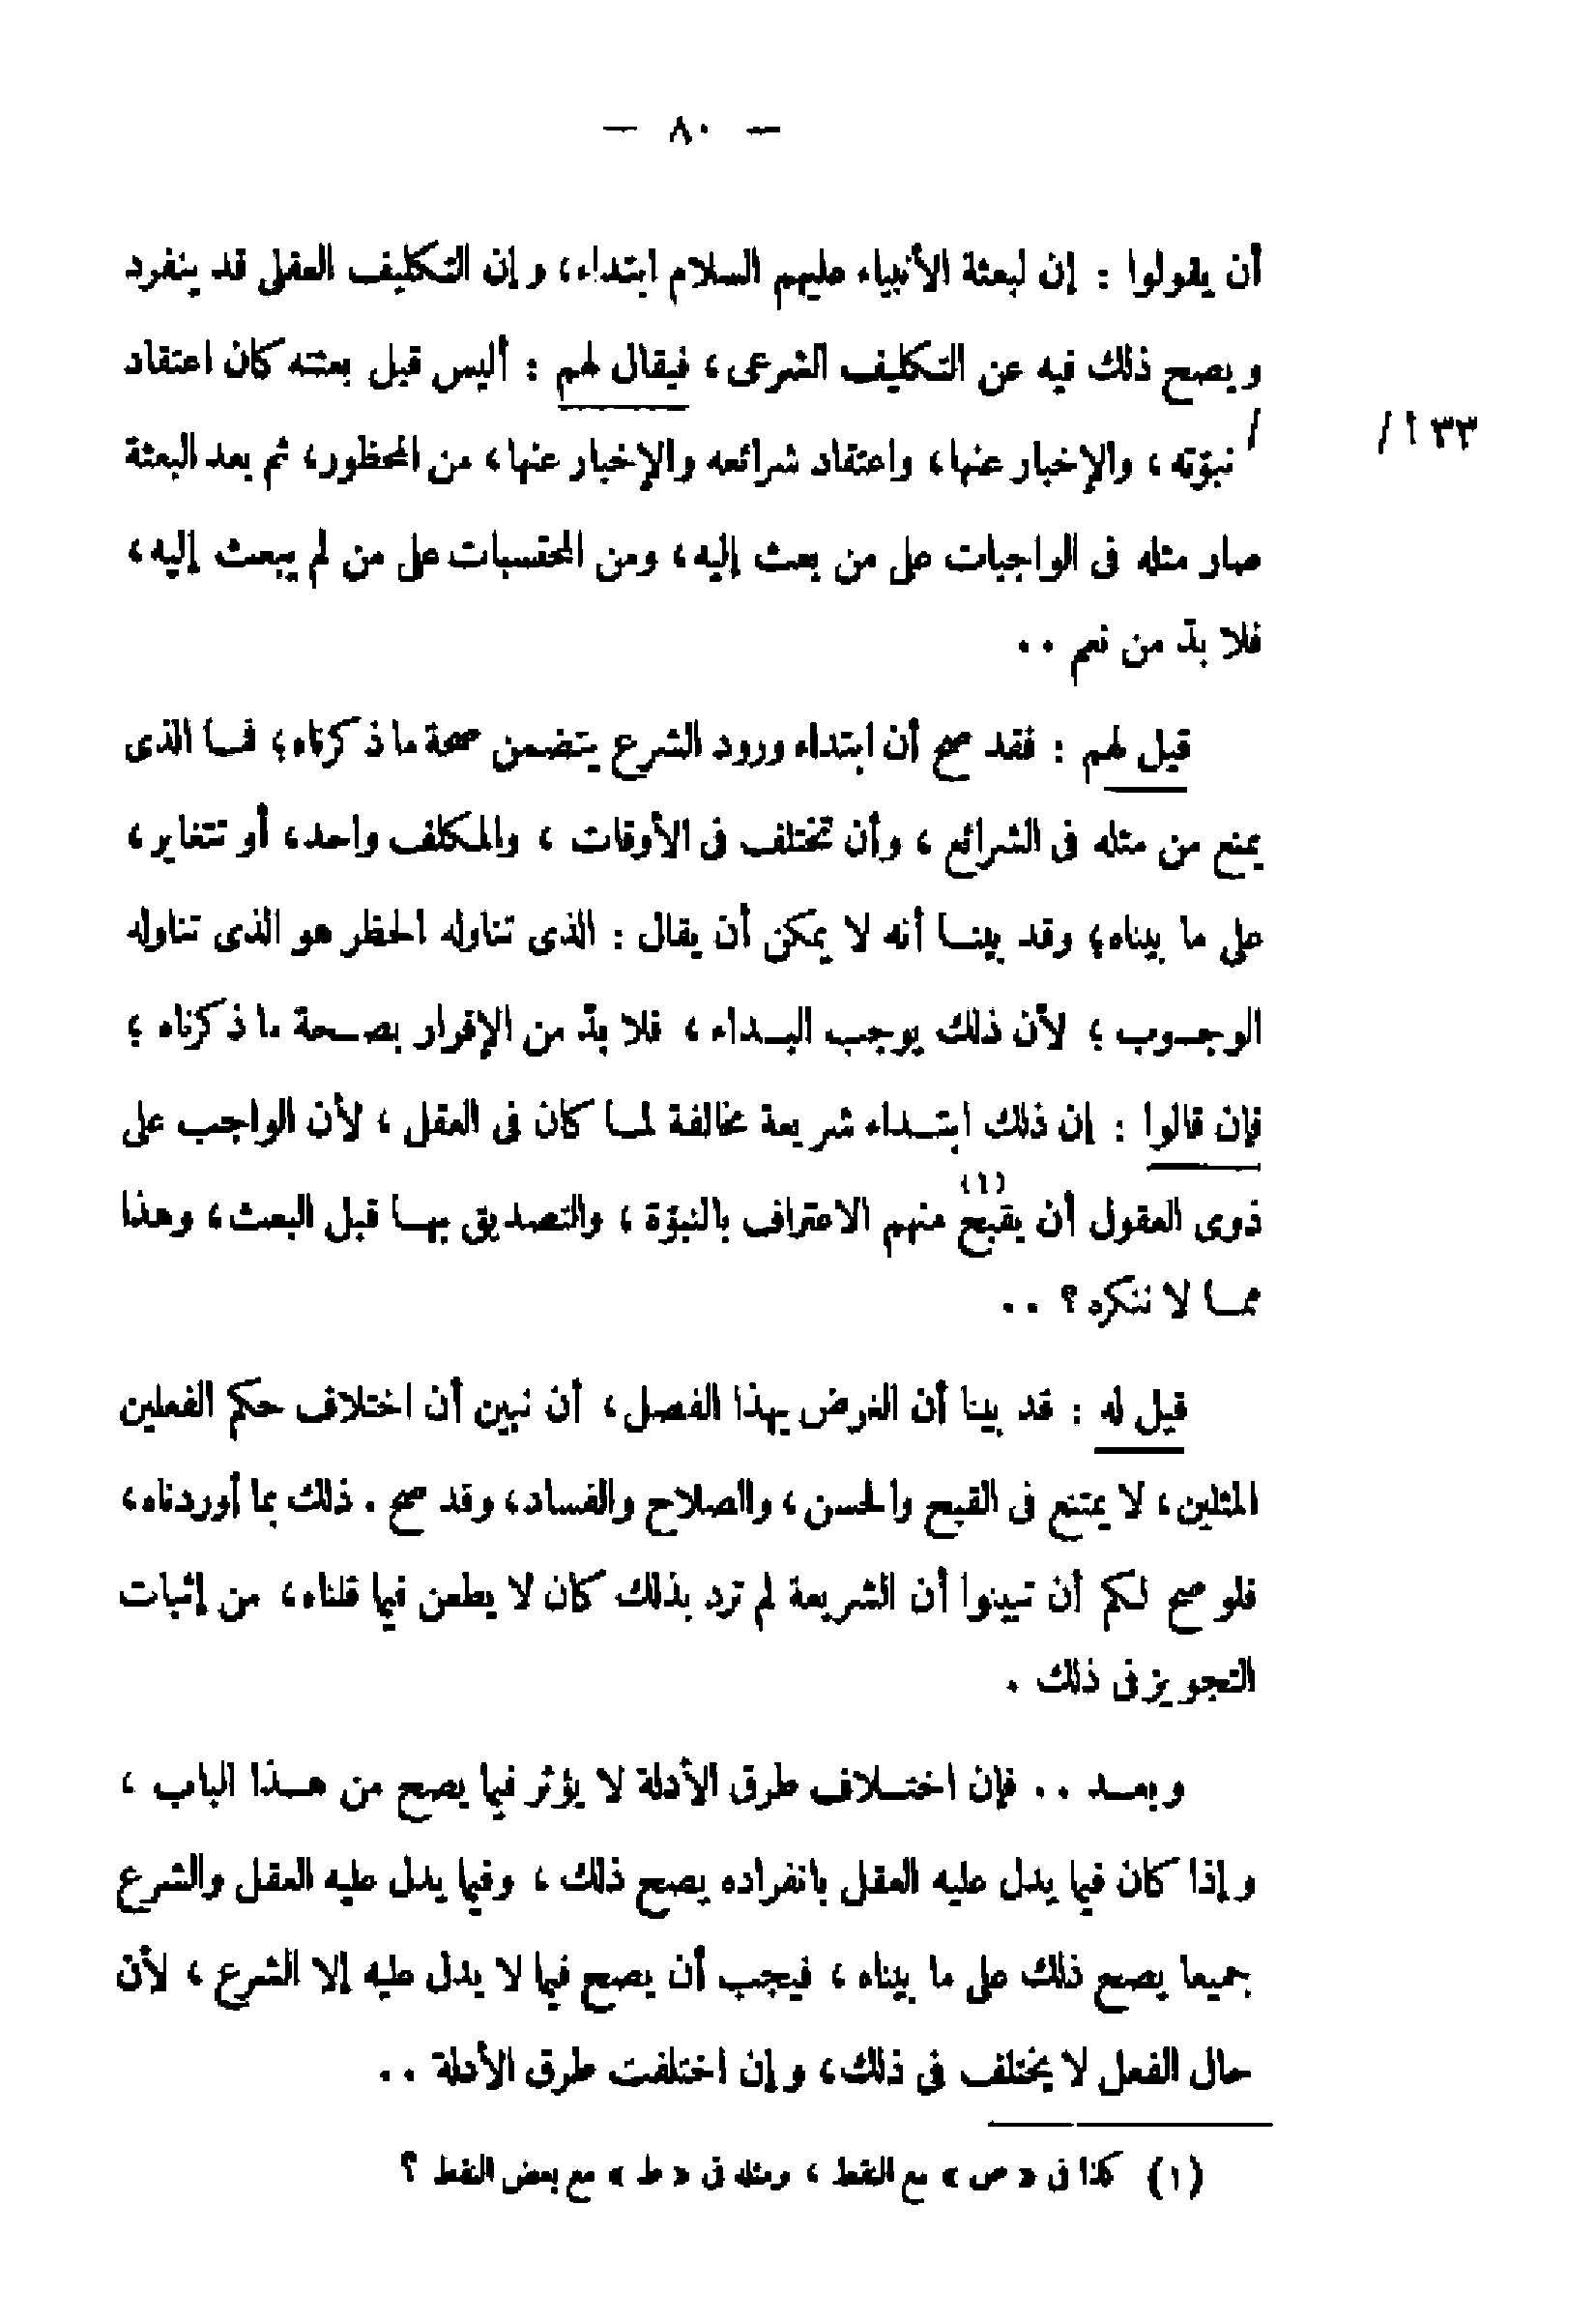 — ٨٠ —
أن يقولوا : إن لبعثة الأنبياء عليهم السلام ابتداء، وإن التكليف العقلى قد ينفرد
ويصح ذلك فيه عن التكليف الشرعى ، فيقال لهم : أليس قبل بعثته كان اعتقاد
/ نبوّته ، والإخبار عنها، واعتقاد شرائعه والإخبار عنها، من المحظور، ثم بعد البعثة
٣٣ أ /
صار مثله فى الواجبات على من بعث إليه، ومن المحتسبات على من لم يبعث إليه،
فلا بدّ من نعم ..
قيل لهم : فقد صح أن ابتداء ورود الشرع يتضمن صحة ما ذكرناه؛ فما الذى
يمنع من مثله فى الشرائع ، وأن تختلف فى الأوقات ، والمكلف واحد، أو تتغاير،
على ما بيناه؛ وقد بينا أنه لا يمكن أن يقال : الذى تناوله الحظر هو الذى تناوله
الوجوب ؛ لأن ذلك يوجب البداء ، فلا بدّ من الإقرار بصحة ما ذكرناه ؛
فإن قالوا : إن ذلك ابتداء شريعة مخالفة لما كان فى العقل ، لأن الواجب على
ذوى العقول أن يقبح (١) منهم الاعتراف بالنبوّة ، والتصديق بها قبل البعث، وهذا
مما لا ننكره ؟ ..
قيل له : قد بينا أن الغرض بهذا الفصل، أن نبين أن اختلاف حكم الفعلين
المثلين، لا يمتنع فى القبح والحسن ، والصلاح والفساد، وقد صح . ذلك بما أوردناه،
فلو صح لكم أن تبينوا أن الشريعة لم ترد بذلك كان لا يطعن فيما قلناه، من إثبات
التجويز فى ذلك .
وبعد .. فإن اختلاف طرق الأدلة لا يؤثر فيما يصح من هذا الباب ،
وإذا كان فيما يدل عليه العقل بانفراده يصح ذلك ، وفيما يدل عليه العقل والشرع
جميعا يصح ذلك على ما بيناه ، فيجب أن يصح فيما لا يدل عليه إلا الشرع ، لأن
حال الفعل لا يختلف فى ذلك، وإن اختلفت طرق الأدلة ..
(١) كذا فى « ص » مع النقط ، ومثله فى « ط » مع بعض النقط ؟